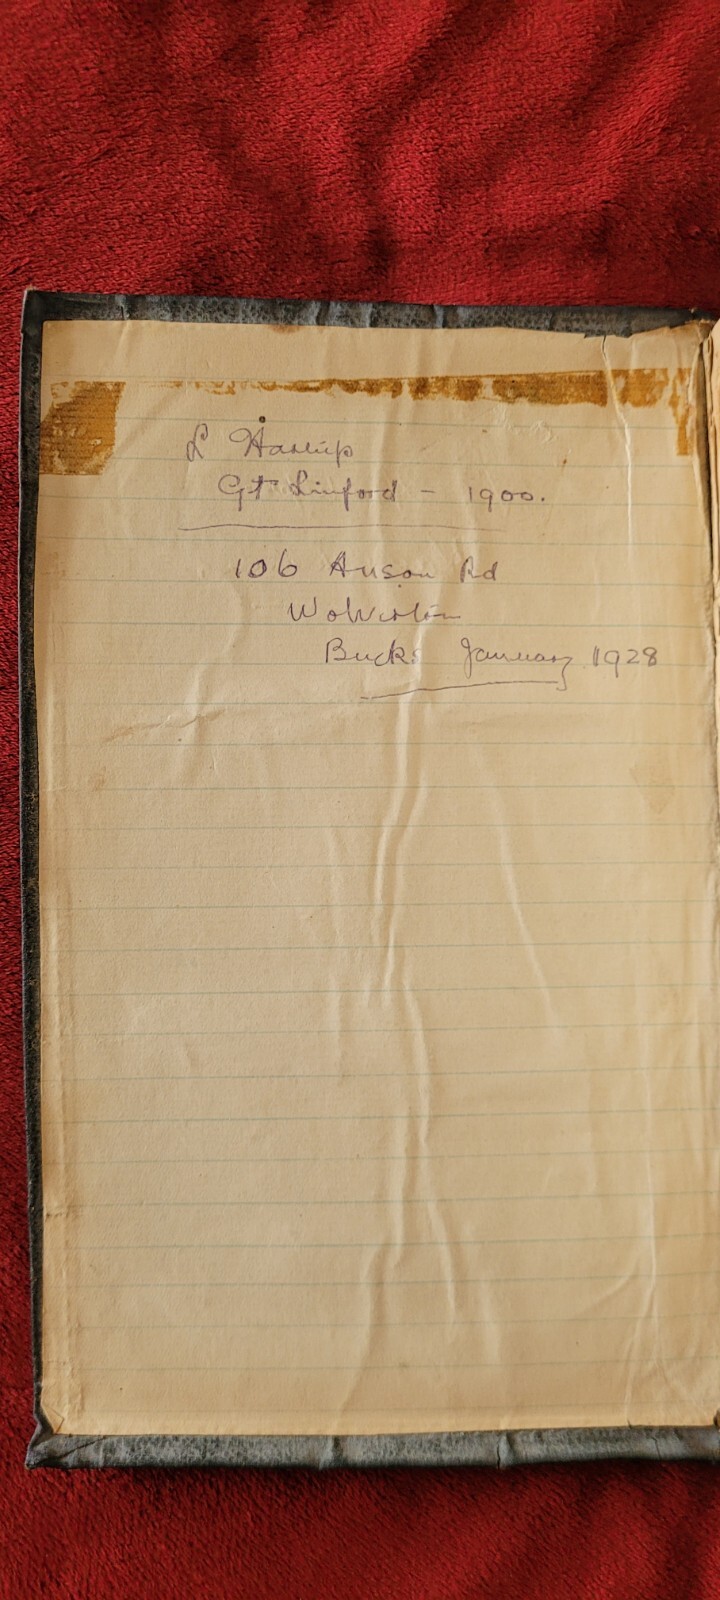 L Harrup
Gt Linford - 1900.
106 Anson Rd
Wolverton
Bucks January 1928